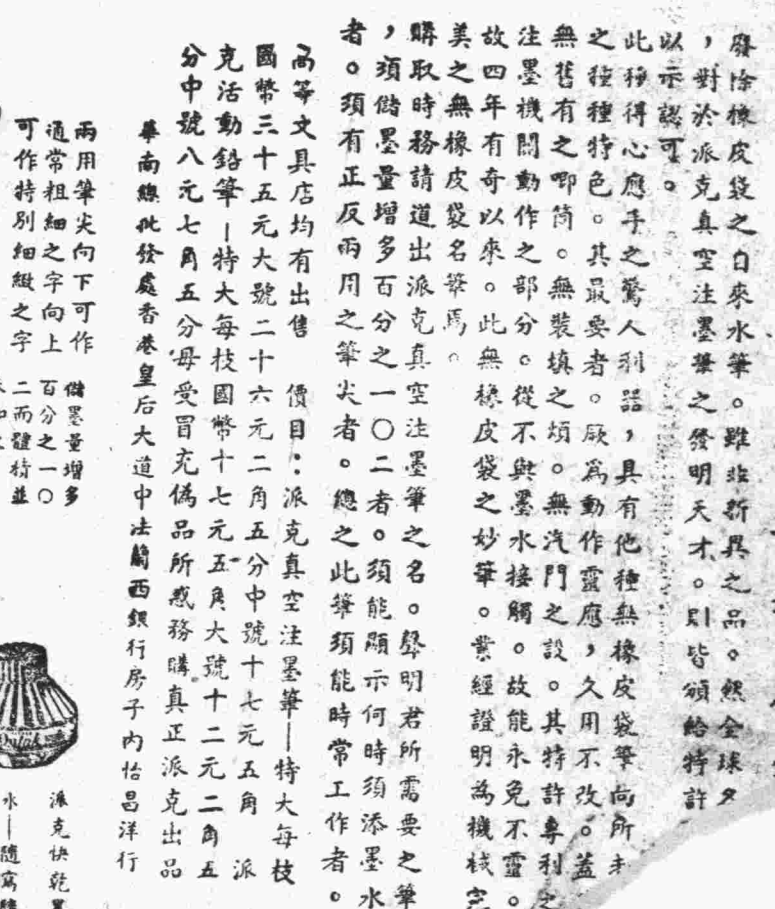 廢除橡皮袋之自來水筆。雖非新異之品。然全球
，對於派克真空注墨筆之發明天才。則皆頒給特許
以示認可。
此種得心應手之驚人利器，具有他種無橡皮袋筆尚所未
之種種特色。其最要者。厥爲動作靈應，久用不改。蓋
無舊有之唧筒。無裝填之煩。無汽門之設。其特許專利之
注墨機關動作之部分。從不與墨水接觸。故能永免不靈。
故四年有奇以來。此無橡皮袋之妙筆。業經證明為機械完
美之無橡皮袋名筆焉。
購取時務請道出派克真空注墨筆之名。聲明君所需要之筆
，須儲墨量增多百分之一〇二者。須能顯示何時須添墨水
者。須有正反兩用之筆尖者。總之此筆須能時常工作者。
高等文具店均有出售 價目：派克真空注墨筆—特大每枝
國幣三十五元大號二十六元二角五分中號十七元五角 派
克活動鉛筆—特大每枝國幣十七元五角大號十二元二角五
分中號八元七角五分毋受冒充偽品所惑務購真正派克出品
華南總批發處香港皇后大道中法蘭西銀行房子內怡昌洋行
兩用筆尖向下可作
通常粗細之字向上
可作特別細緻之字
儲墨量增多
百分之一〇
二而體積並
Quink
派克快乾墨
水—隨寫隨